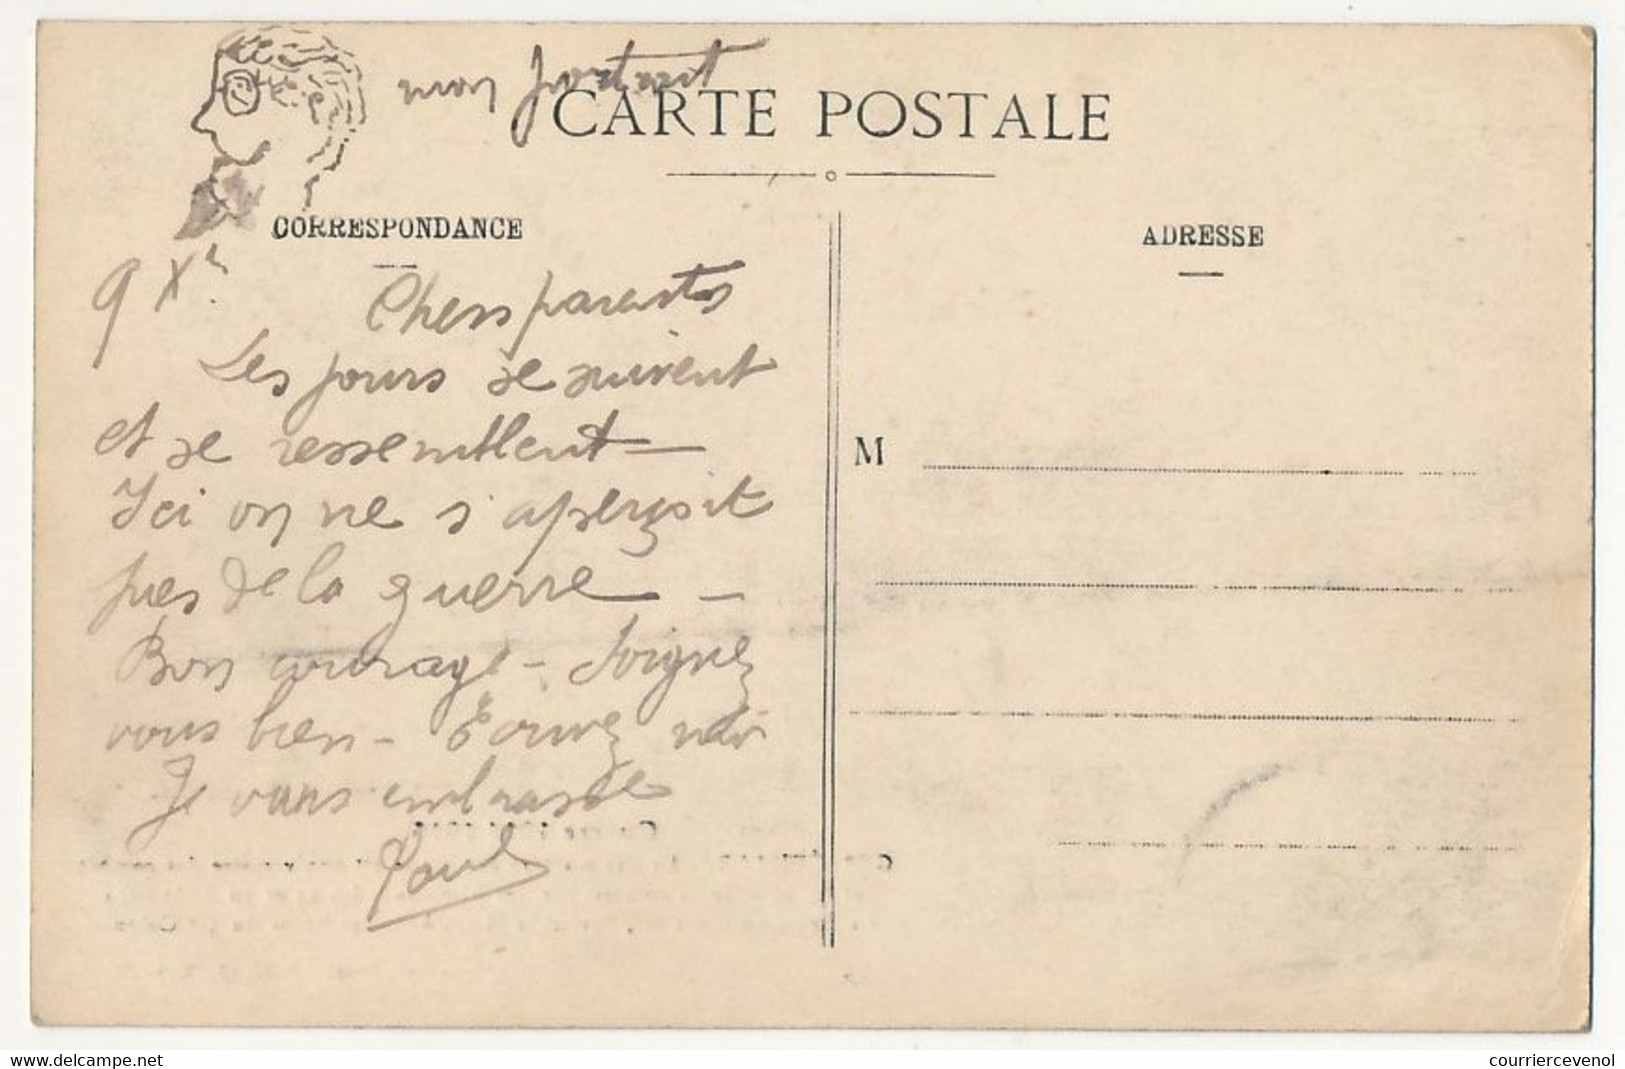 mon portrait
CARTE POSTALE
CORRESPONDANCE
ADRESSE
9 Xbre
Chers parents
Les jours se suivent
et se ressemblent —
Ici on ne s'aperçoit
pas de la guerre —
Bon courage – Soignez
vous bien – Ecrivez moi
Je vous embrasse
Paul
M
courriercevenol
www.delcampe.net